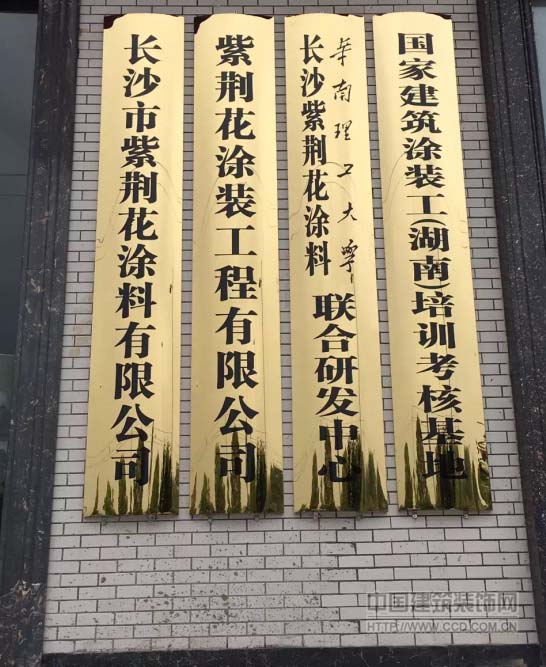 长沙市紫荆花涂料有限公司
紫荆花涂装工程有限公司
华南理工大学
长沙紫荆花涂料
联合研发中心
国家建筑涂装工(湖南)培训考核基地
中国建筑装饰网
HTTP://WWW.CCD.COM.CN